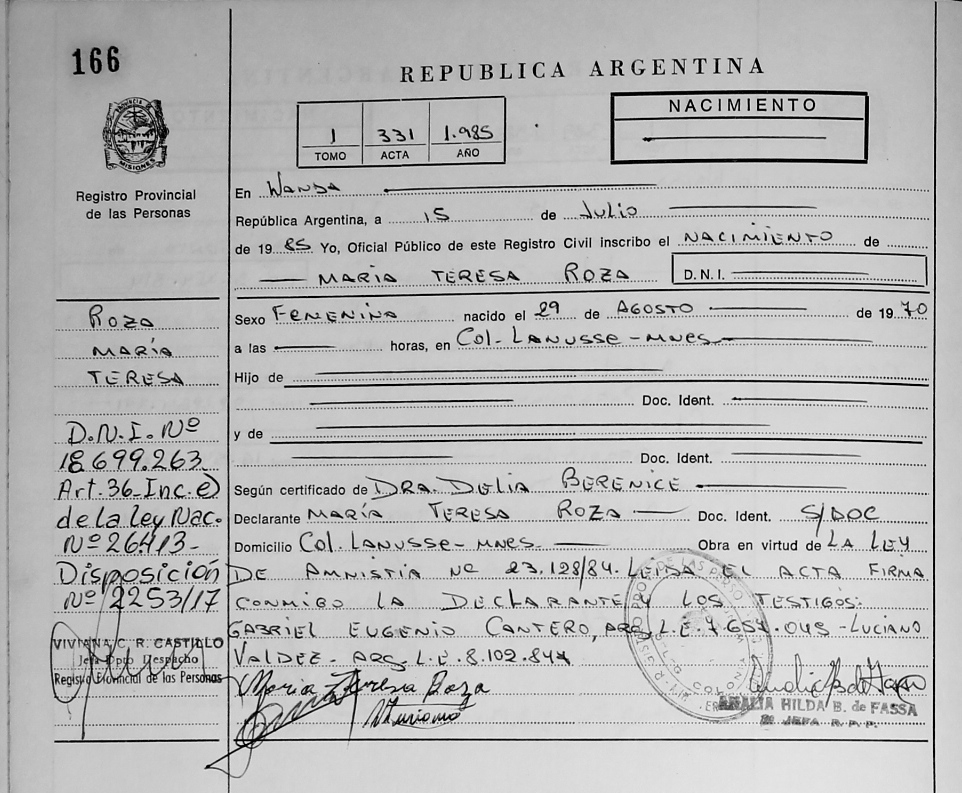 166
REPUBLICA ARGENTINA
1 331 1.985
TOMO ACTA AÑO
NACIMIENTO
PROVINCIA DE
MISIONES
Registro Provincial
de las Personas
En WANDA
República Argentina, a 15 de Julio
de 19 85 Yo, Oficial Público de este Registro Civil inscribo el NACIMIENTO de
MARÍA TERESA ROZA D.N.I.
ROZA
MARÍA
TERESA
D.N.I. Nº
18.699.263
Art. 36-Inc. e)
de la ley Nac.
Nº 26413-
Disposición
Nº 2253/17
VIVIANA C. R. CASTILLO
Jefa Dpto Despacho
Registro Provincial de las Personas
Sexo FEMENINA nacido el 29 de AGOSTO de 19 70
a las horas, en Col. LANUSSE - MNES
Hijo de
Doc. Ident.
y de
Doc. Ident.
Según certificado de DRA. DELIA BERENICE
Declarante MARÍA TERESA ROZA Doc. Ident. S/DOC
Domicilio Col. LANUSSE - MNES Obra en virtud de LA LEY
DE AMNISTIA Nº 23.128/84. LEIDA EL ACTA FIRMA
CONMIGO LA DECLARANTE Y LOS TESTIGOS:
GABRIEL EUGENIO CANTERO, ARG. L.E. 7.657.045 - LUCIANO
VALDEZ - ARG. L.E. 8.102.844
Maria Teresa Roza
AMALIA HILDA B. de FASSA
JEFA R.P.P.